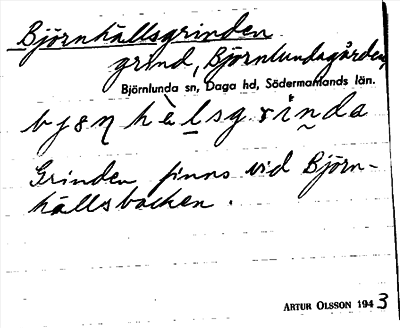 Björnhällsgrinden
grind, Björnlundagården,
Björnlunda sn, Daga hd, Södermanlands län.
Grinden finns vid Björn-
hällsbacken.
ARTUR OLSSON 1943